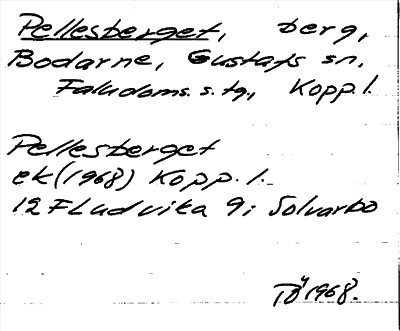 Pellesberget, berg,
Bodarne, Gustafs sn,
Faludoms. s. tg., Kopp. l.
Pellesberget
ek (1968) Kopp. l.
12 F Ludvika 9i Solvarbo
1968.